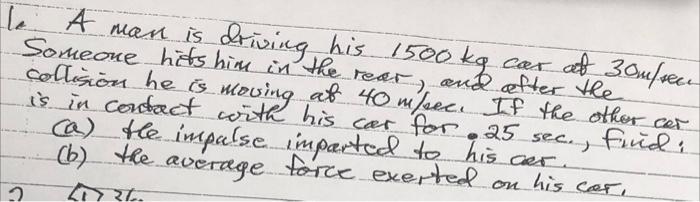 1. A man is driving his 1500 kg car at 30m/sec.
Someone hits him in the rear, and after the
collision he is moving at 40 m/sec. If the other car
is in contact with his car for .25 sec., find:
(a) the impulse imparted to his car.
(b) the average force exerted on his car.